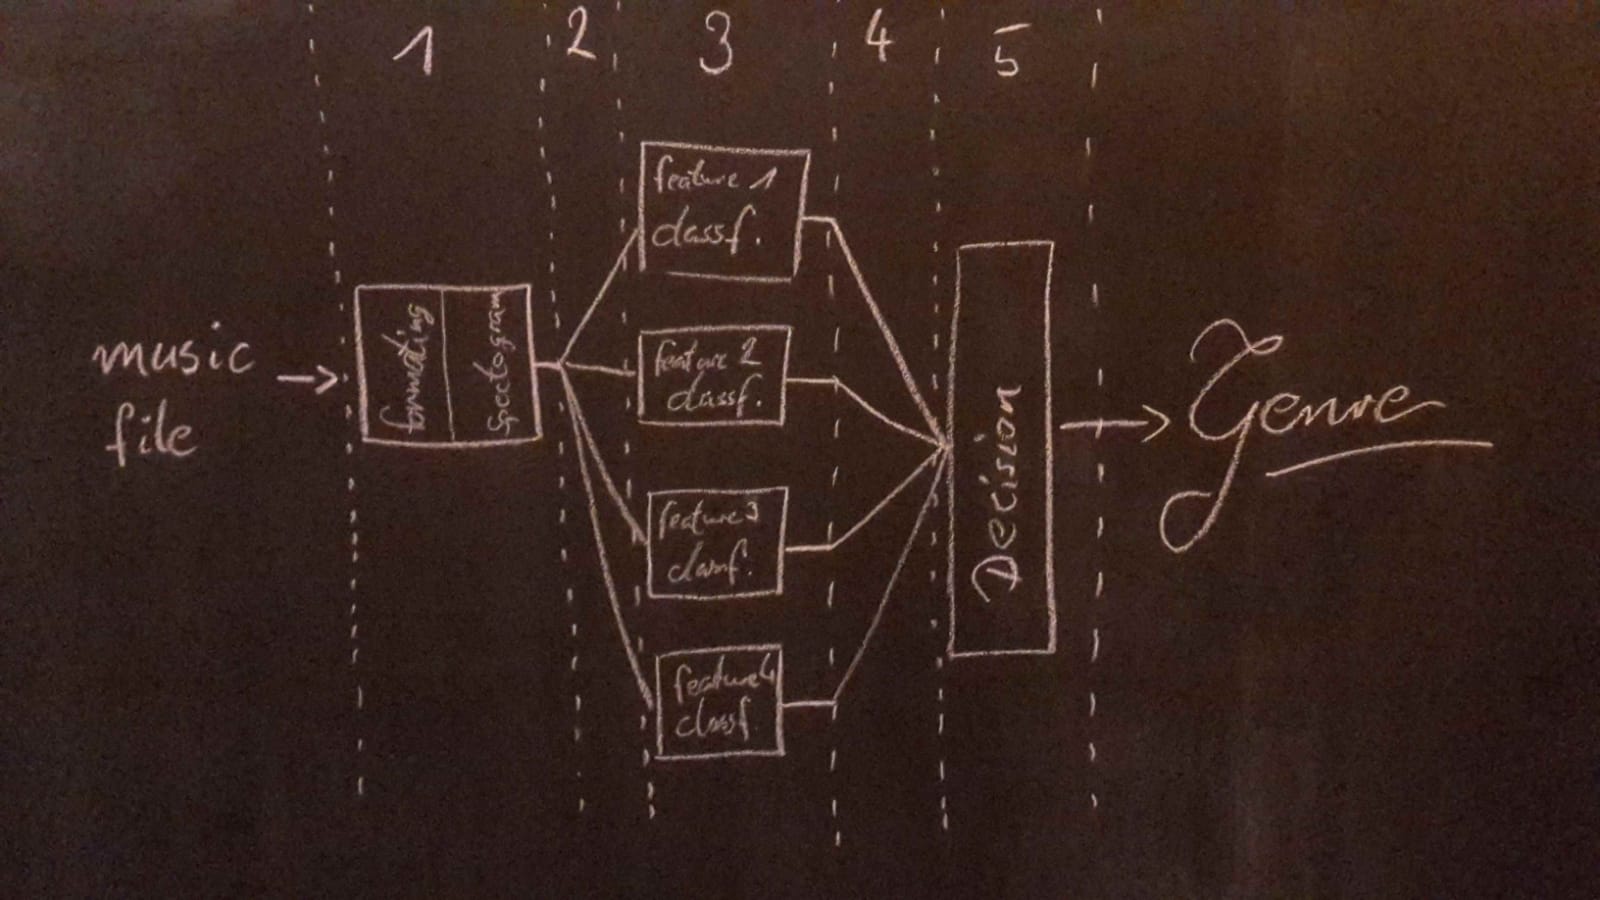 1
2
3
4
5
music
file
formating
spectogram
feature 1
classf.
feature 2
classf.
feature 3
classf.
feature 4
classf.
Decision
Genre